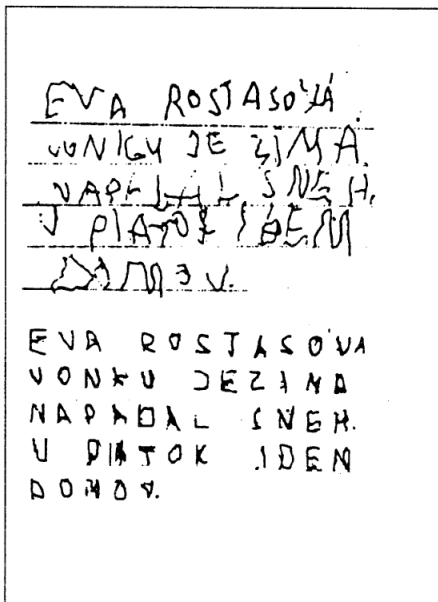 EVA ROSTASOVÁ
VONKU JE ZIMA.
NAPADAL SNEH.
V PIATOK IDEM
DOMOV.
EVA ROSTASOVA
VONKU JEZIMA
NAPADAL SNEH.
V PIATOK IDEM
DOMOV.